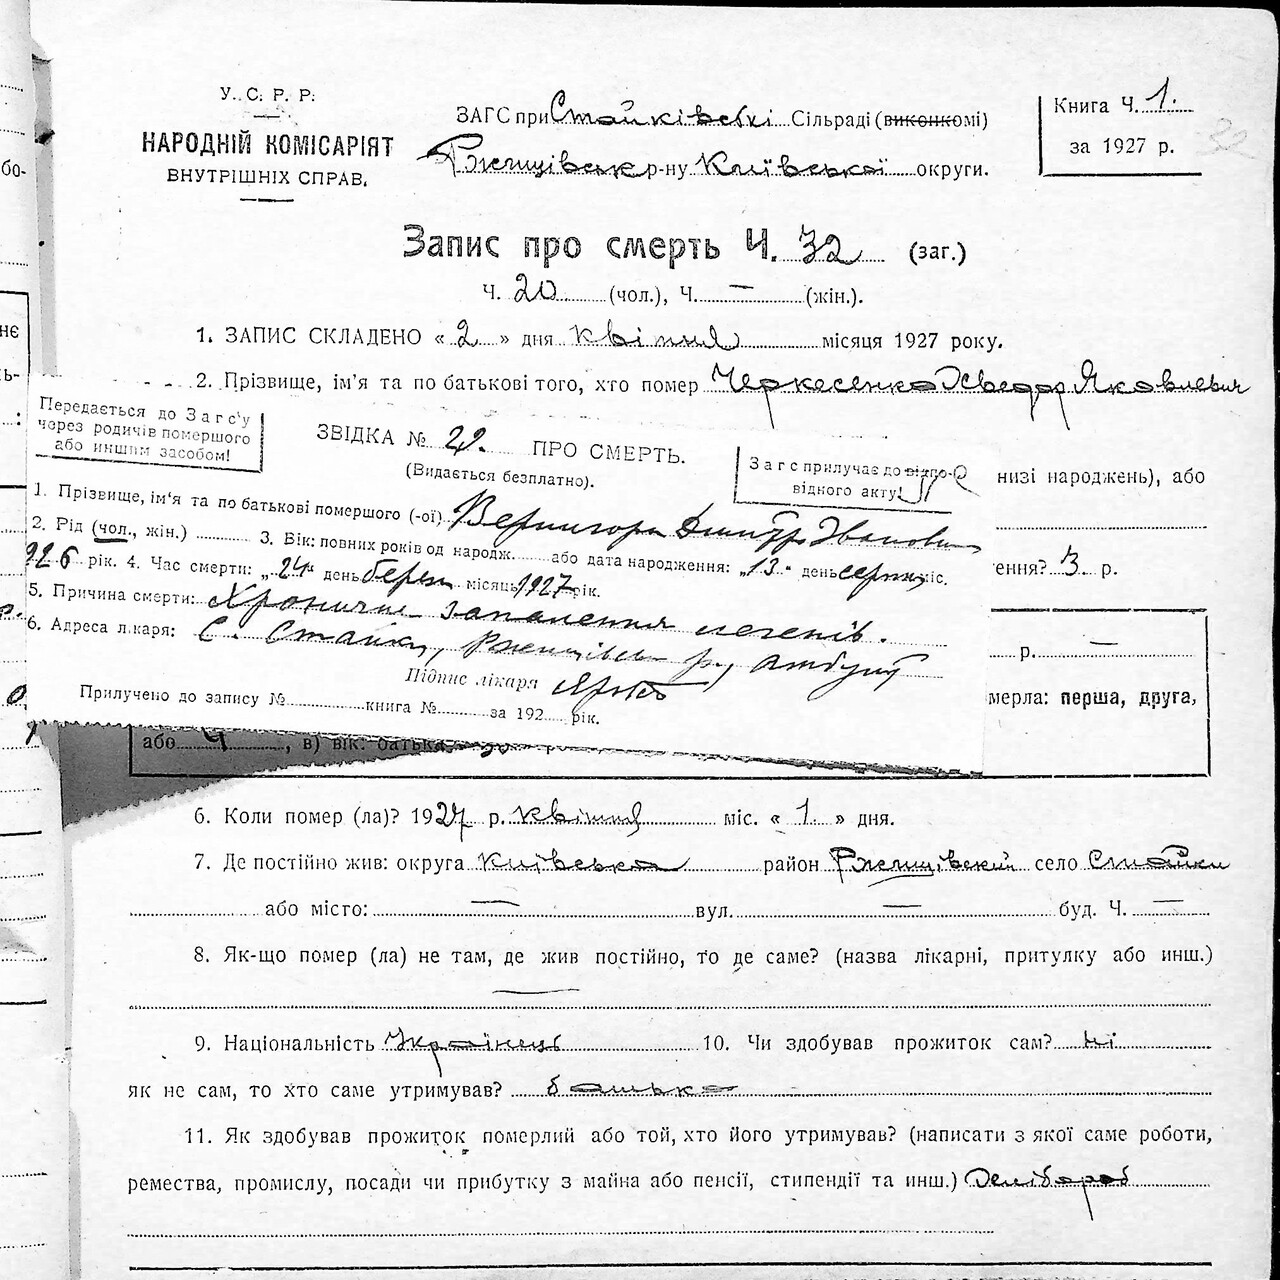 У. С. Р. Р.
НАРОДНІЙ КОМІСАРІЯТ
ВНУТРІШНІХ СПРАВ.
ЗАГС при Стайківські Сільраді (виконкомі)
Ржищівськ р-ну Київської округи.
Книга Ч. 1.
за 1927 р.
32
Запис про смерть Ч. 32 (заг.)
Ч. 20 (чол.), Ч. — (жін.).
1. ЗАПИС СКЛАДЕНО « 2 » дня квітня місяця 1927 року.
2. Прізвище, ім'я та по батькові того, хто помер Черкесенко Хведор Яковлевич
Передається до Загс'у
через родичів помершого
або иншим засобом!
ЗВІДКА № 29. ПРО СМЕРТЬ.
(Видається безплатно).
Загс прилучає до відпо-
відного акту!
низі народжень), або
1. Прізвище, ім'я та по батькові помершого (-ої) Вернигора Дмитр Іванович
2. Рід (чол., жін.) 3. Вік: повних років од народж. або дата народження: „13" день серпня міс.
926 рік. 4. Час смерти: „24" день берез місяць 1927 рік.
ення? 3 р.
5. Причина смерти: Хронічне запалення легенів.
6. Адреса лікаря: С. Стайки, Ржищівськ р., амбулат
р. —
Підпис лікаря
Прилучено до запису № книга № за 192 рік.
мерла: перша, друга,
або 4, в) вік: батька
6. Коли помер (ла)? 1927 р. квітня міс. « 1 » дня.
7. Де постійно жив: округа Київська район Ржищівский село Стайки
або місто: — вул. — буд. Ч. —
8. Як-що помер (ла) не там, де жив постійно, то де саме? (назва лікарні, притулку або инш.)
—
9. Національність Українець 10. Чи здобував прожиток сам? ні
як не сам, то хто саме утримував? батько
11. Як здобував прожиток померлий або той, хто його утримував? (написати з якої саме роботи,
ремества, промислу, посади чи прибутку з майна або пенсії, стипендії та инш.) Хлібороб